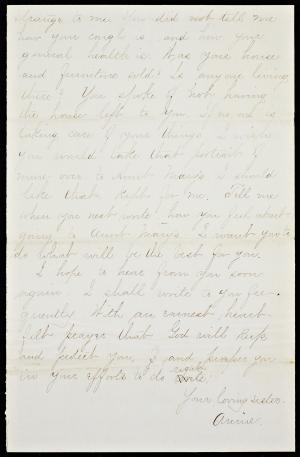 strange to me. You did not tell me
how your cough is and how your
general health is. Was your house
and furniture sold? Is anyone living
there? You spoke of not having
the house left to you. Is no one
taking care of your things. I wish
you would take that portrait of
mine over to Aunt Mary's I should
like that kept for me. Tell me
when you next write how you feel about
going to Aunt Mary's. I want you to
do what will be the best for you.
I hope to hear from you soon
again. I shall write to you fre-
quently. With an earnest, heart-
felt prayer that God will keep
and protect you, and prosper you
in your efforts to do right
Your loving sister.
Annie.